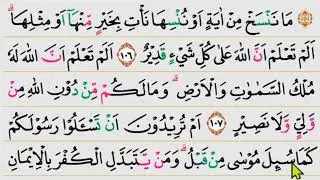 مَا نَنْسَخْ مِنْ اٰيَةٍ اَوْ نُنْسِهَا نَأْتِ بِخَيْرٍ مِّنْهَآ اَوْ مِثْلِهَا ۗ
اَلَمْ تَعْلَمْ اَنَّ اللّٰهَ عَلٰى كُلِّ شَيْءٍ قَدِيْرٌ ١٠٦ اَلَمْ تَعْلَمْ اَنَّ اللّٰهَ لَهٗ
مُلْكُ السَّمٰوٰتِ وَالْاَرْضِ ۗ وَمَا لَكُمْ مِّنْ دُوْنِ اللّٰهِ مِنْ
وَّلِيٍّ وَّلَا نَصِيْرٍ ١٠٧ اَمْ تُرِيْدُوْنَ اَنْ تَسْـَٔلُوْا رَسُوْلَكُمْ
كَمَا سُىِٕلَ مُوْسٰى مِنْ قَبْلُ ۗ وَمَنْ يَّتَبَدَّلِ الْكُفْرَ بِالْاِيْمَانِ